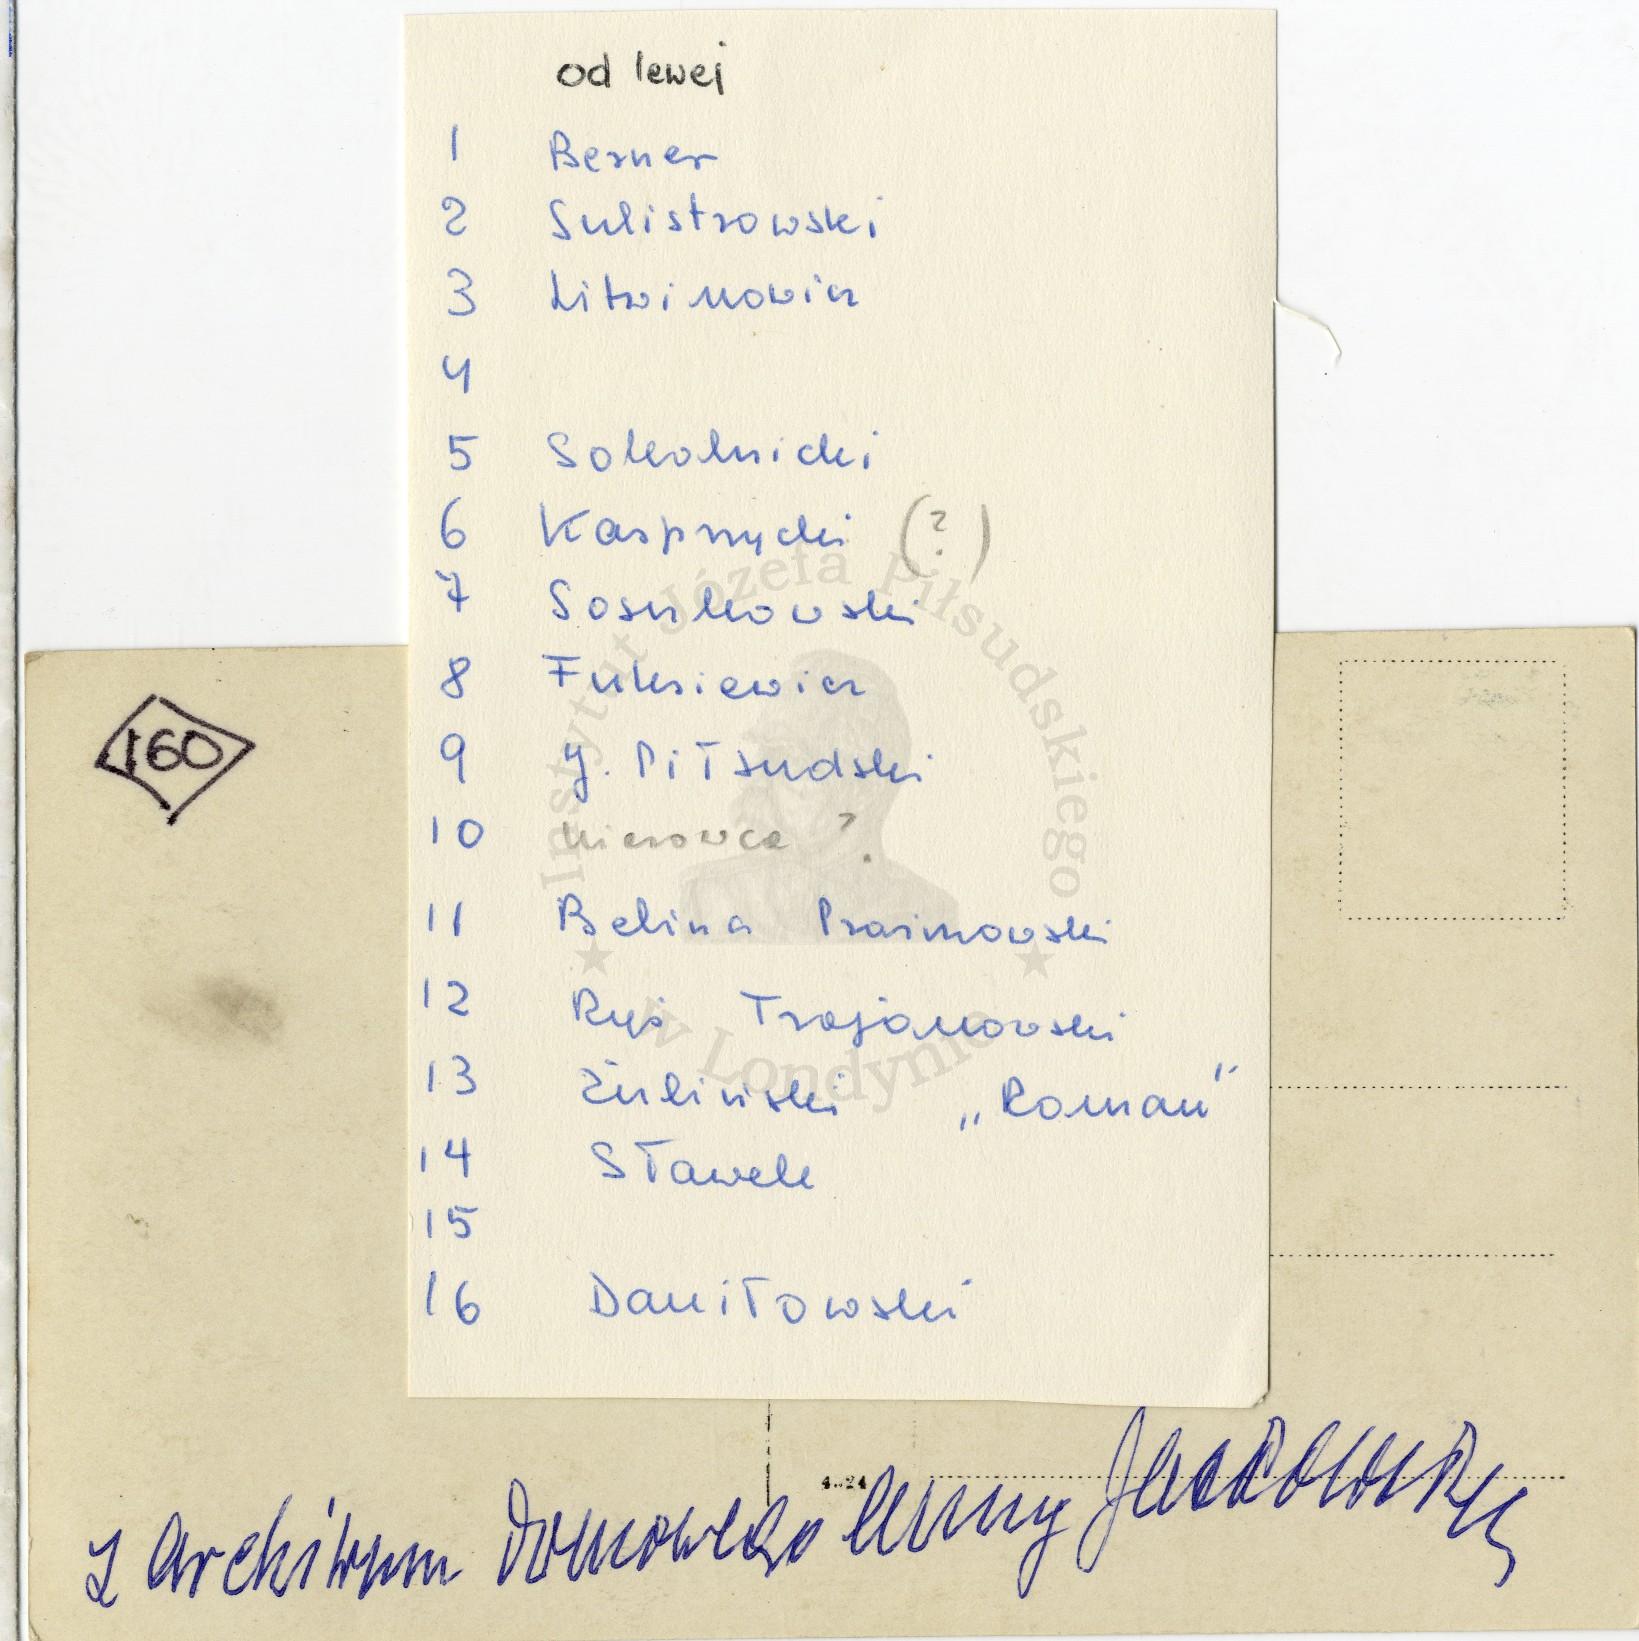 od lewej
1 Berner
2 Sulistrowski
3 Litwinowicz
4
5 Sokolnicki
6 Kasprzycki (?)
7 Sosnkowski
8 Fuksiewicz
9 J. Piłsudski
10 kierowca ?
11 Belina Prażmowski
12 Ryś Trojanowski
13 Żuliński „Roman"
14 Sławek
15
16 Daniłowski
Instytut Józefa Piłsudskiego
w Londynie
160
4..24
z archiwum domowego